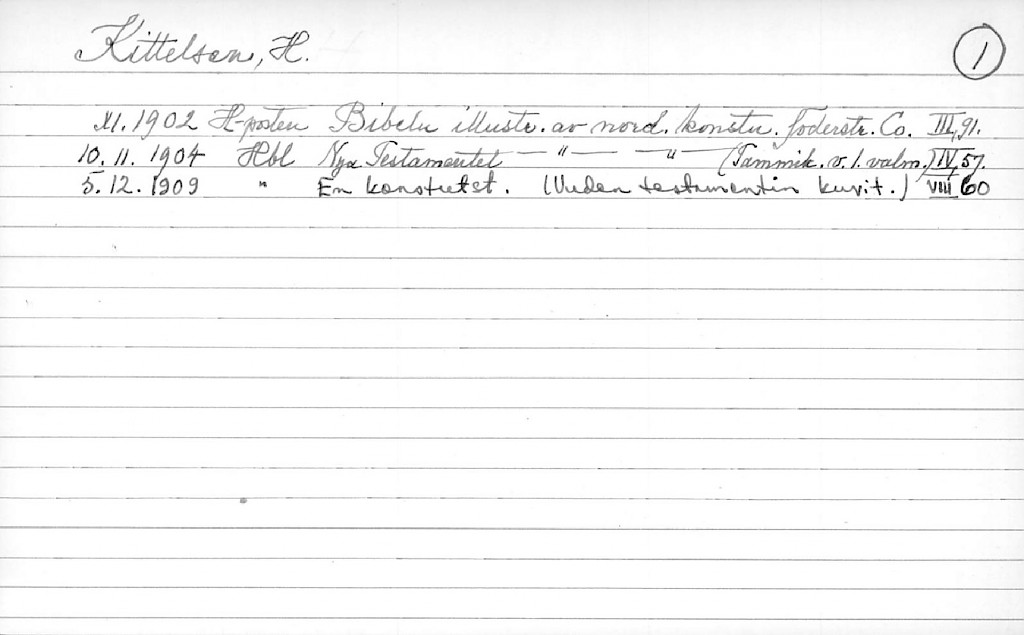 Kittelsen, H.
1
XI. 1902 H-posten Bibeln illustr. av nord. konstn. Söderstr. Co. III, 91.
10. 11. 1904 Hbl Nya Testamentet — " — — " — (Tammik. v. l. valm.) IV, 57.
5. 12. 1909 " En konstutst. (Uuden testamentin kuvit.) VIII 60